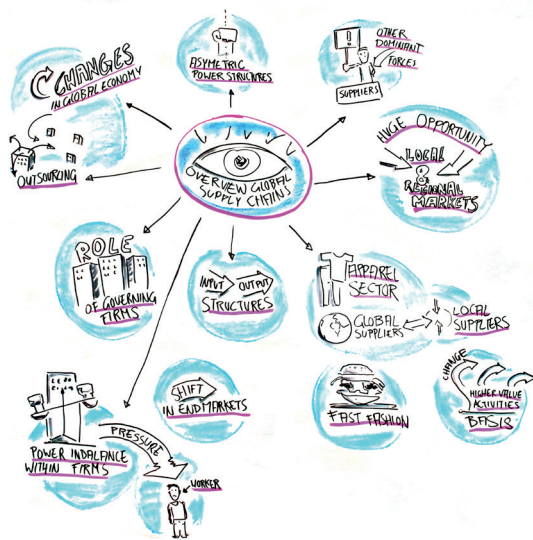 CHANGES
IN GLOBAL ECONOMY
OUTSOURCING
ASYMETRIC
POWER STRUCTURES
!
OTHER
DOMINANT
FORCES
SUPPLIERS
OVERVIEW GLOBAL
SUPPLY CHAINS
HUGE OPPORTUNITY
LOCAL
&
REGIONAL
MARKETS
ROLE
OF GOVERNING
FIRMS
INPUT OUTPUT
STRUCTURES
APPAREL
SECTOR
GLOBAL
SUPPLIERS
LOCAL
SUPPLIERS
SHIFT
IN END MARKETS
FAST FASHION
CHANGE
HIGHER VALUE
ACTIVITIES
BASIS
POWER INBALANCE
WITHIN FIRMS
PRESSURE
WORKER